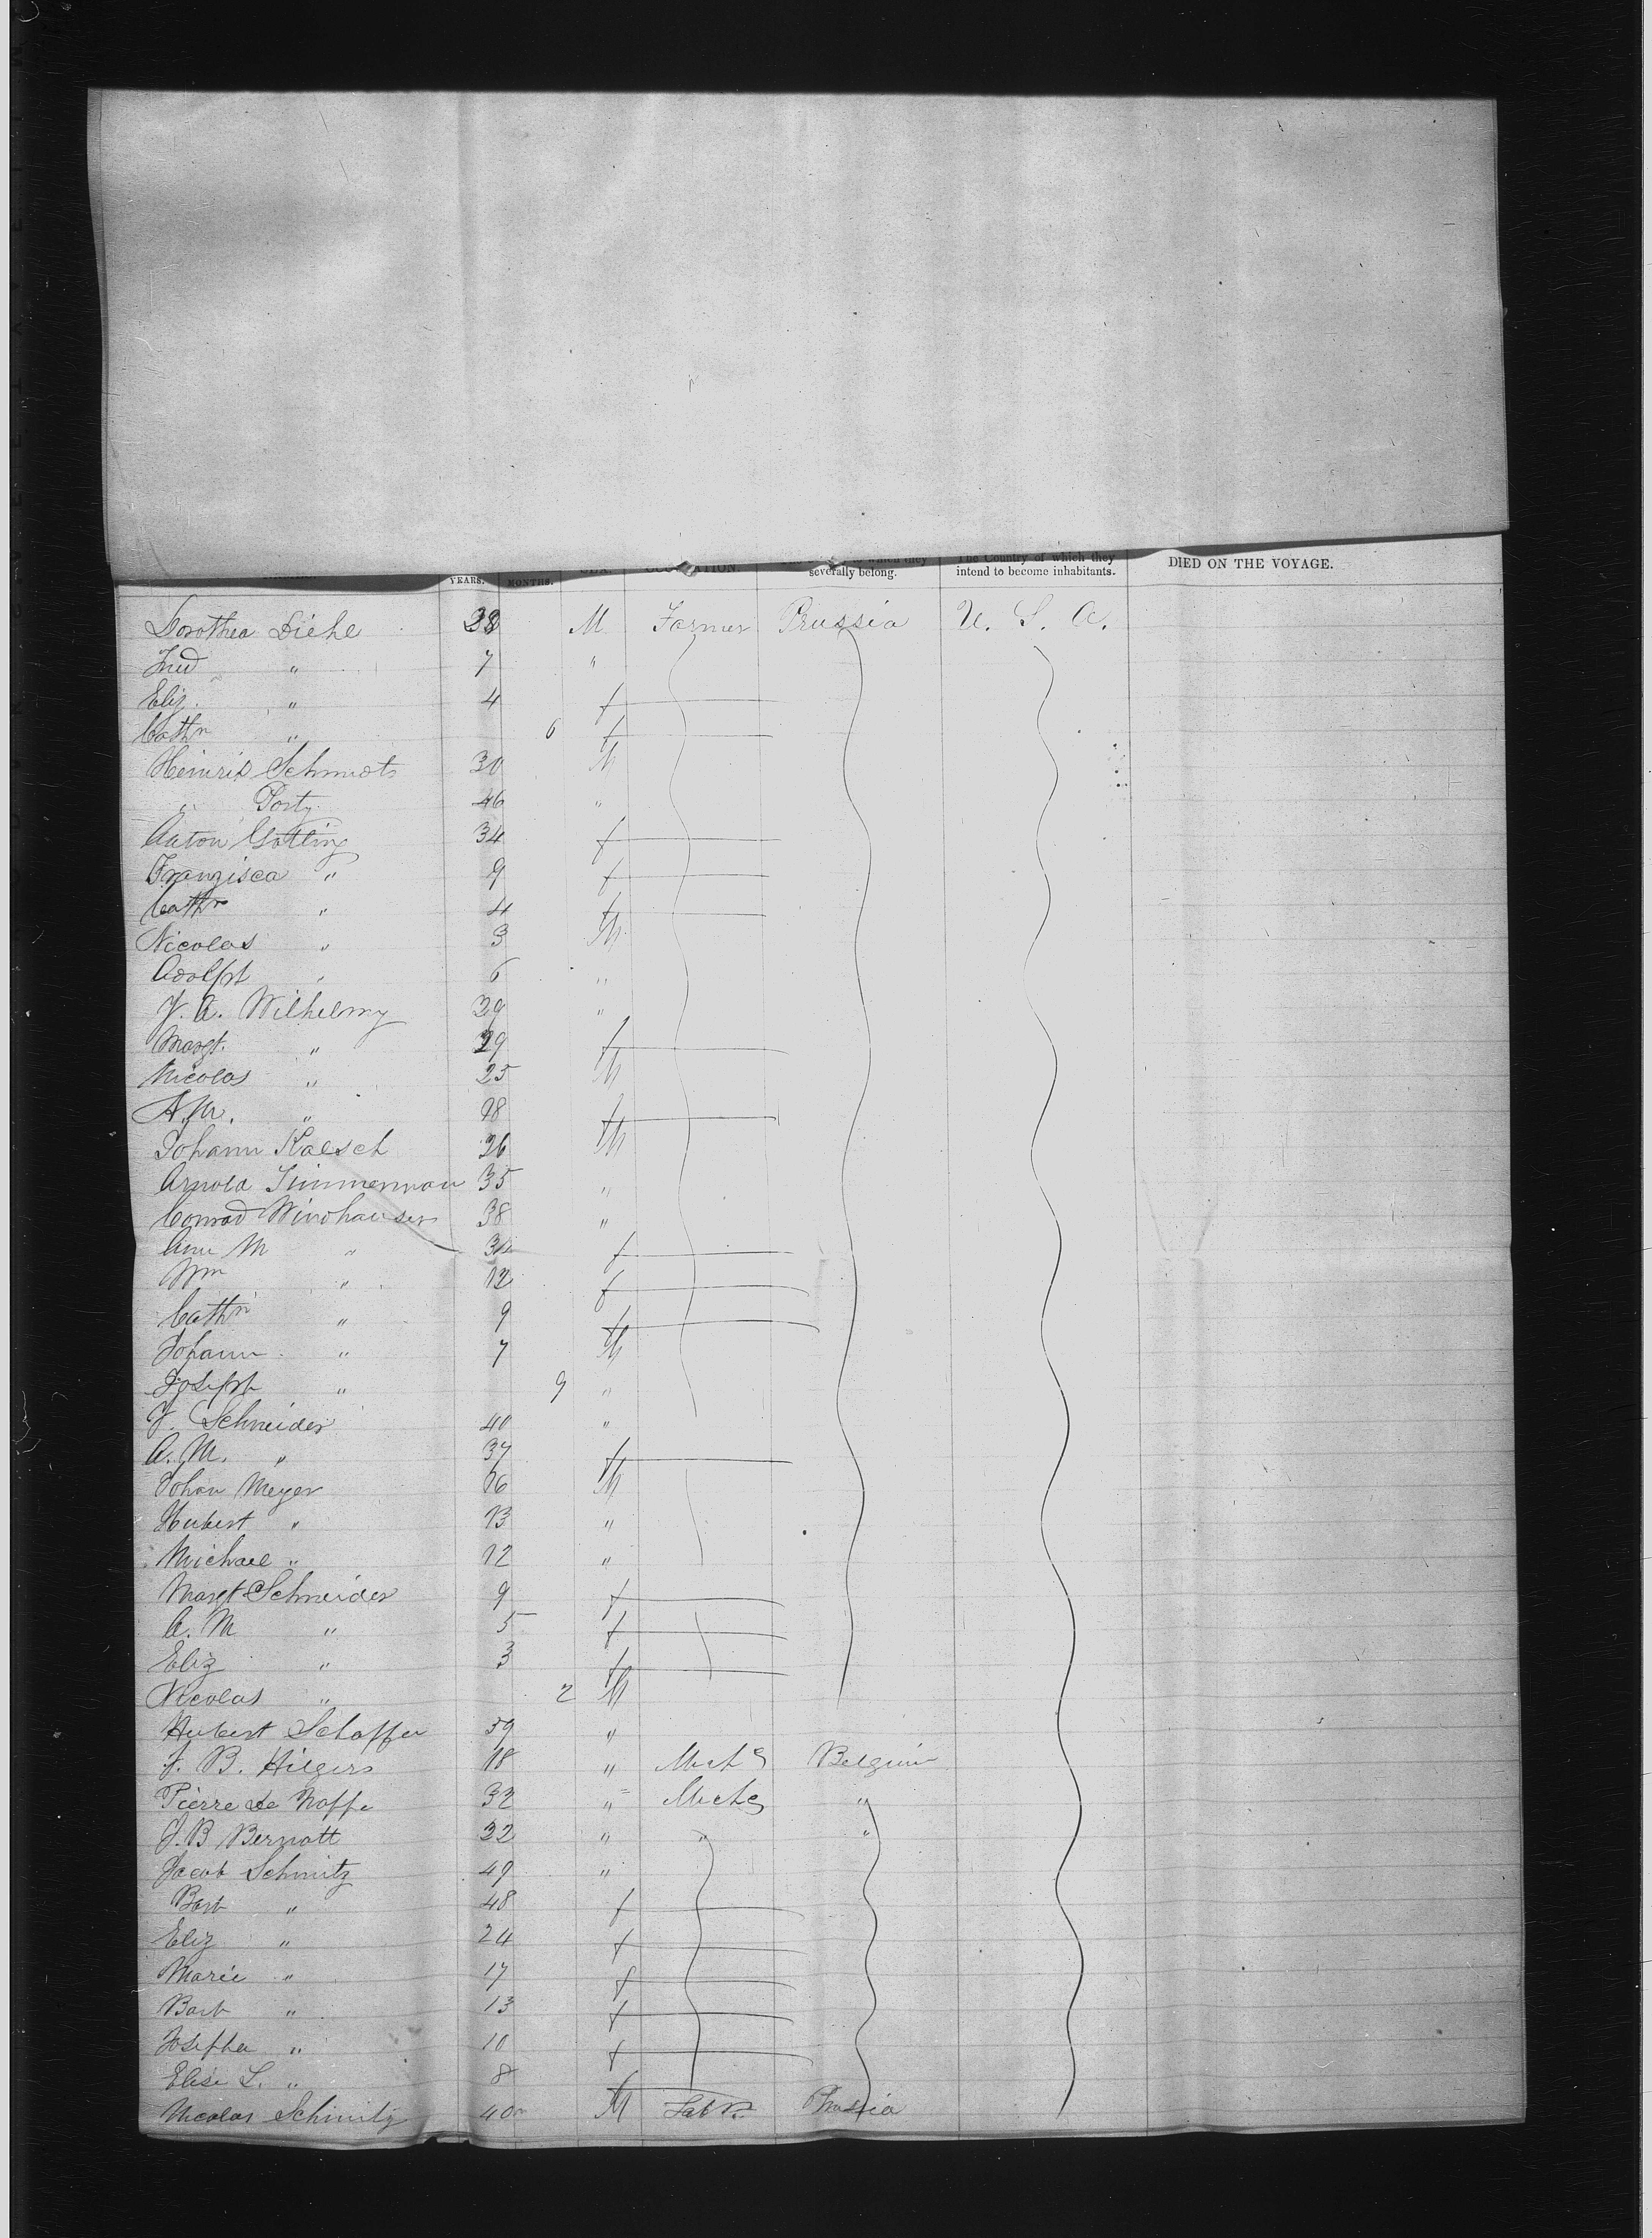 YEARS. MONTHS. SEX. OCCUPATION. to which they severally belong. The Country of which they intend to become inhabitants. DIED ON THE VOYAGE.
Dorothea Diehl 38 M Farmer Prussia U. S. A.
Fred " 7 "
Eliz. " 4 f
Cathn " 6 f
Heinrid Schmidts 30 M
" Porty 46 "
Anton Gotting 34 f
Franzisca " 9 f
Cathn " 4 M
Nicolas " 3
Adolph " 6 "
J. A. Wilhelmy 39 "
Margt. " 29 f
Nicolas " 25 M
A. M. " 18 f
Johann Kaesch 26 M
Arnold Zimmerman 35 "
Conrad Windhauser 38 "
Ann M " 34 f
Wm " 12 f
Cathn " 9 f
Johann " 7 M
Joseph " 9 "
J. Schneider 40 "
A. M. " 37 f
Johan Meyer 16 M
Hubert " 13 "
Michael " 12 "
Margt Schneider 9 f
A. M " 5 f
Eliz " 3 f
Nicolas " 2 M
Hubert Schaffer 59 "
J. B. Hilgers 18 " Mech Belgium
Pierre de Noffe 32 " Mech "
J. B Bernott 32 " " "
Jacob Schmitz 49 "
Barb " 48 f
Eliz " 24 f
Marie " 17 f
Barb " 13 f
Josepha " 10 f
Elise L. " 8 f
Nicolas Schmitz 40 M Labr. Prussia